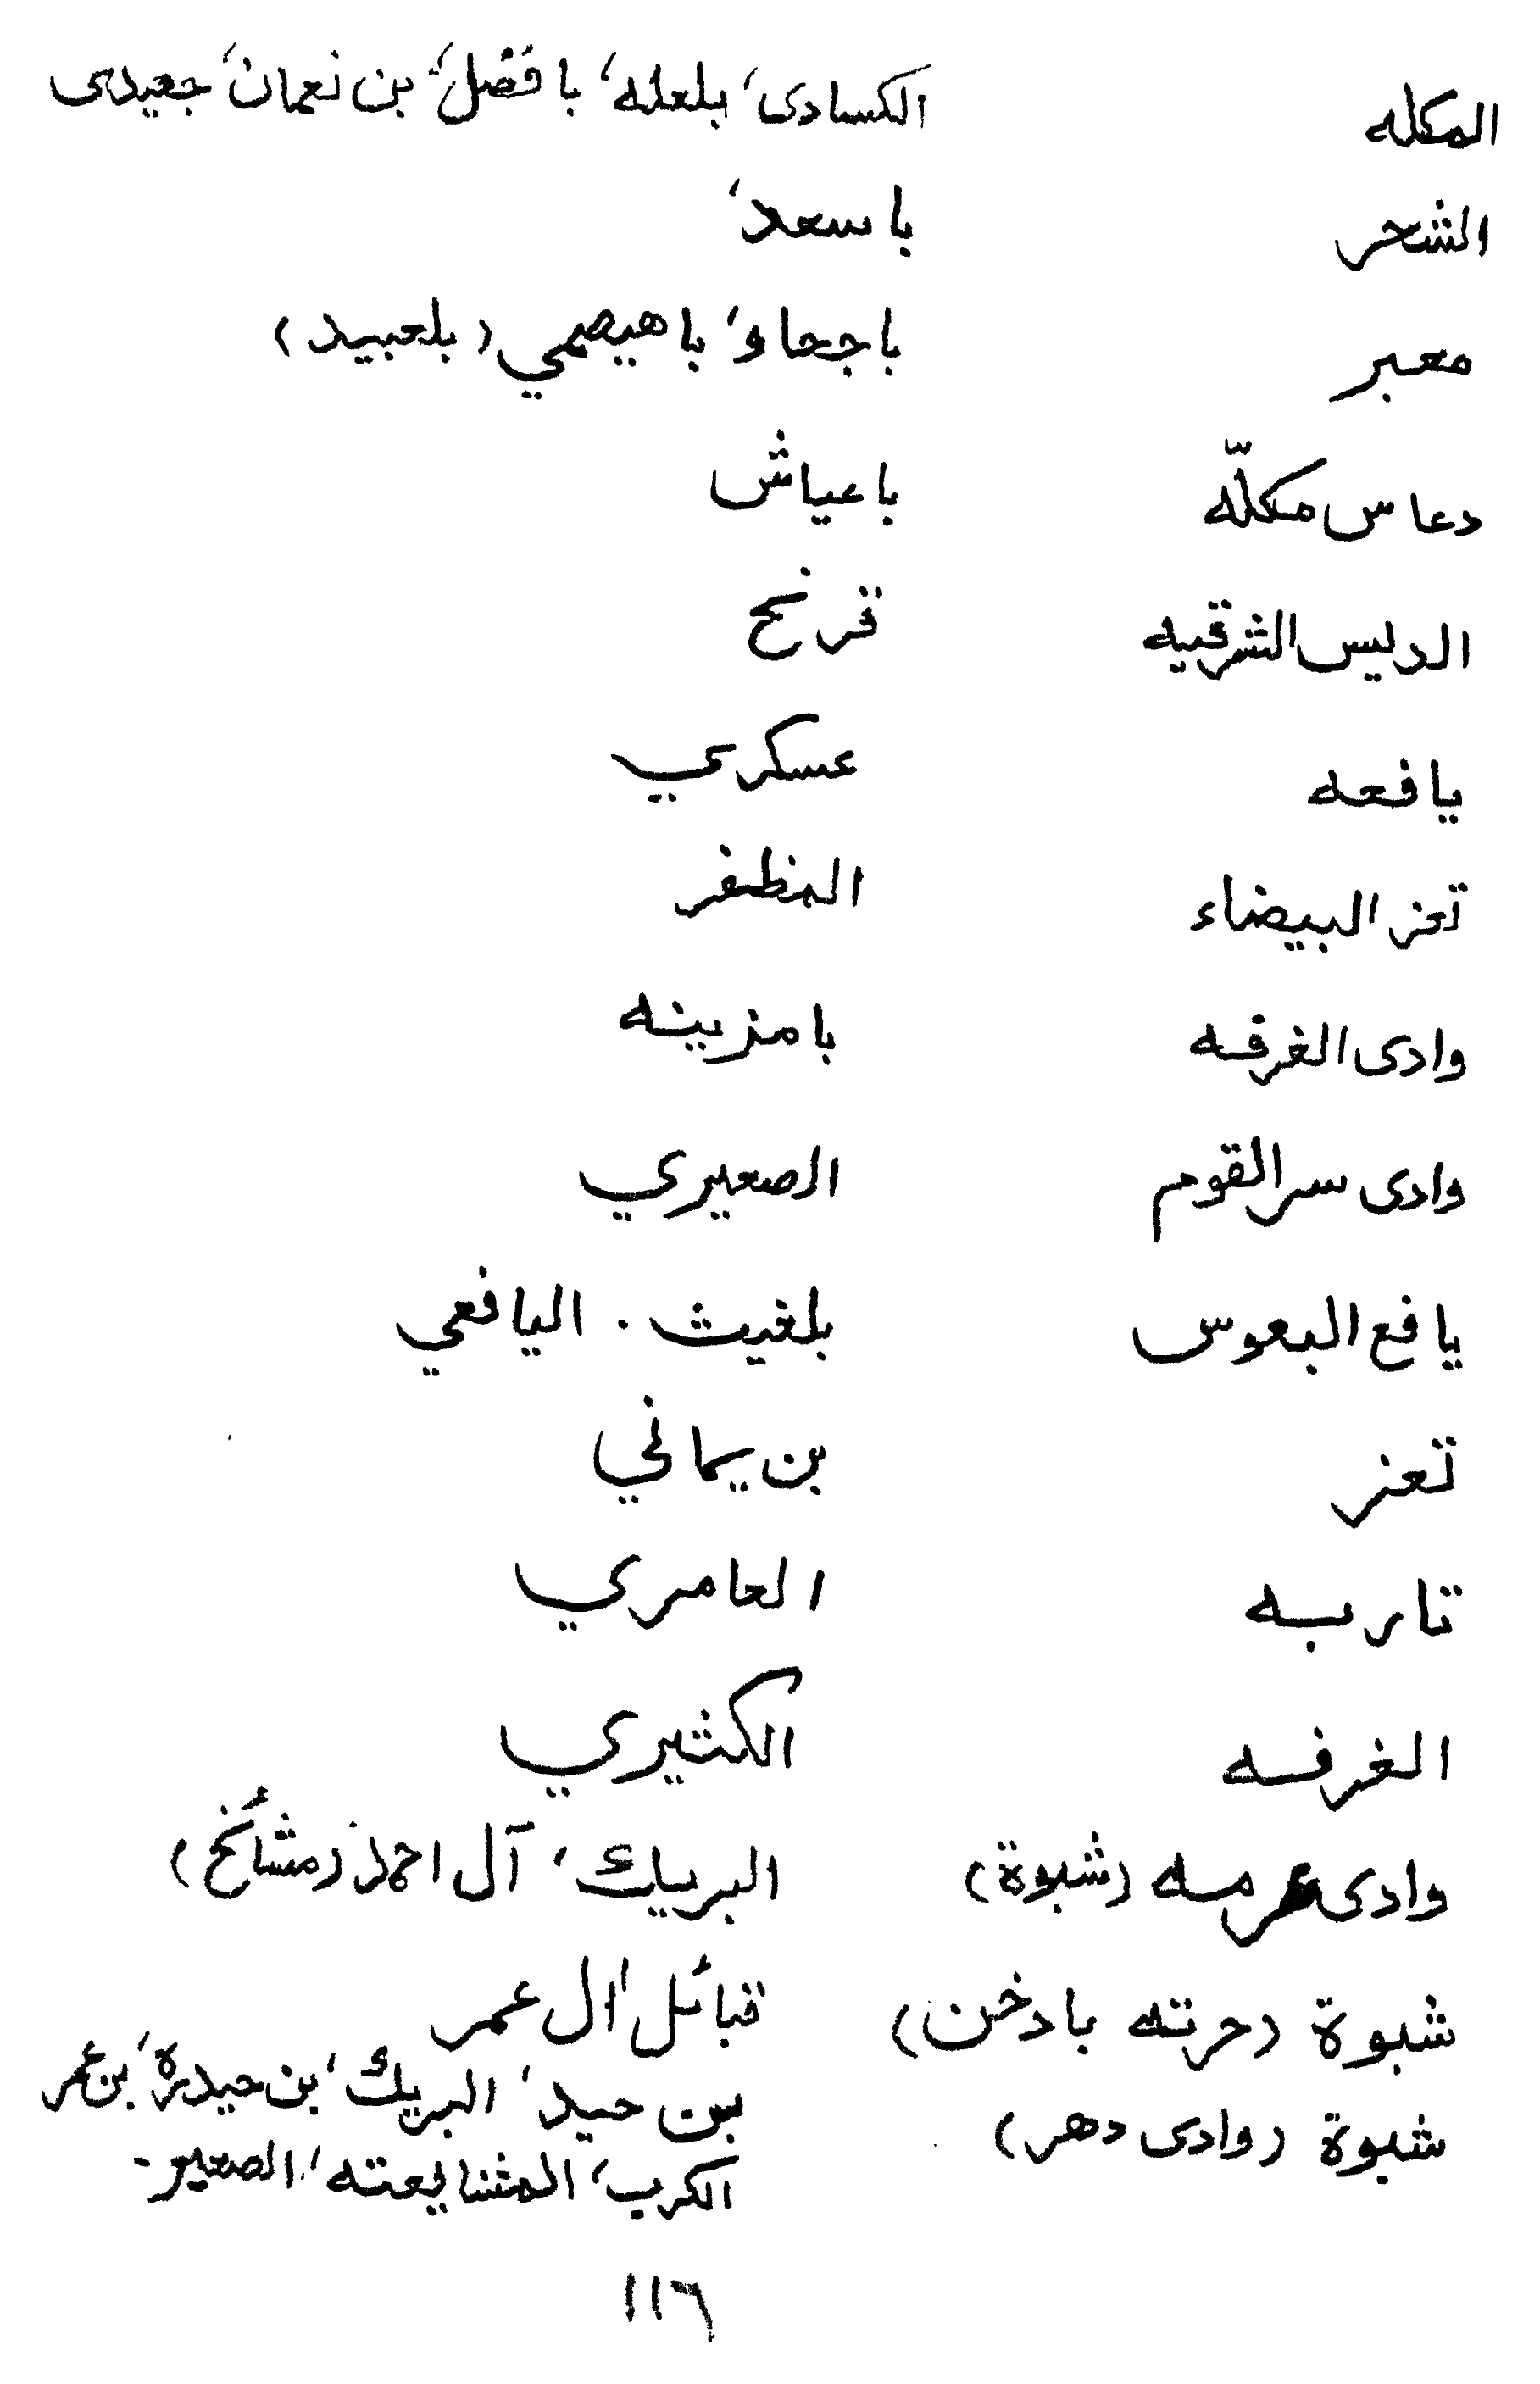 المكله الكسادى، بلعله، با فضل، بن نعمان، جعيدى
الشحر با سعد،
معبر با جحاو، با هيصمي (بلعبيد)
دعاس مكلّه با عياش
الديس الشرقيه فرنح
يافعه عسكري
تعز البيضاء المظفر
وادى الغرفه با مزينه
وادى سر القوم الصعيري
يافع البعوس بلغيث . اليافعي
تعز بن يماني
تاربه العامري
الغرفه الكثيري
وادى عرمه (شبوة) البريك، آل احمد (مشائخ)
شبوة (حرته بادخن) قبائل ال عمر
شبوة (وادى دهر) بن حيد، البريك، بن حيدرة، بن عمر
الكرب، المشايعته، الصعير.
١١٦